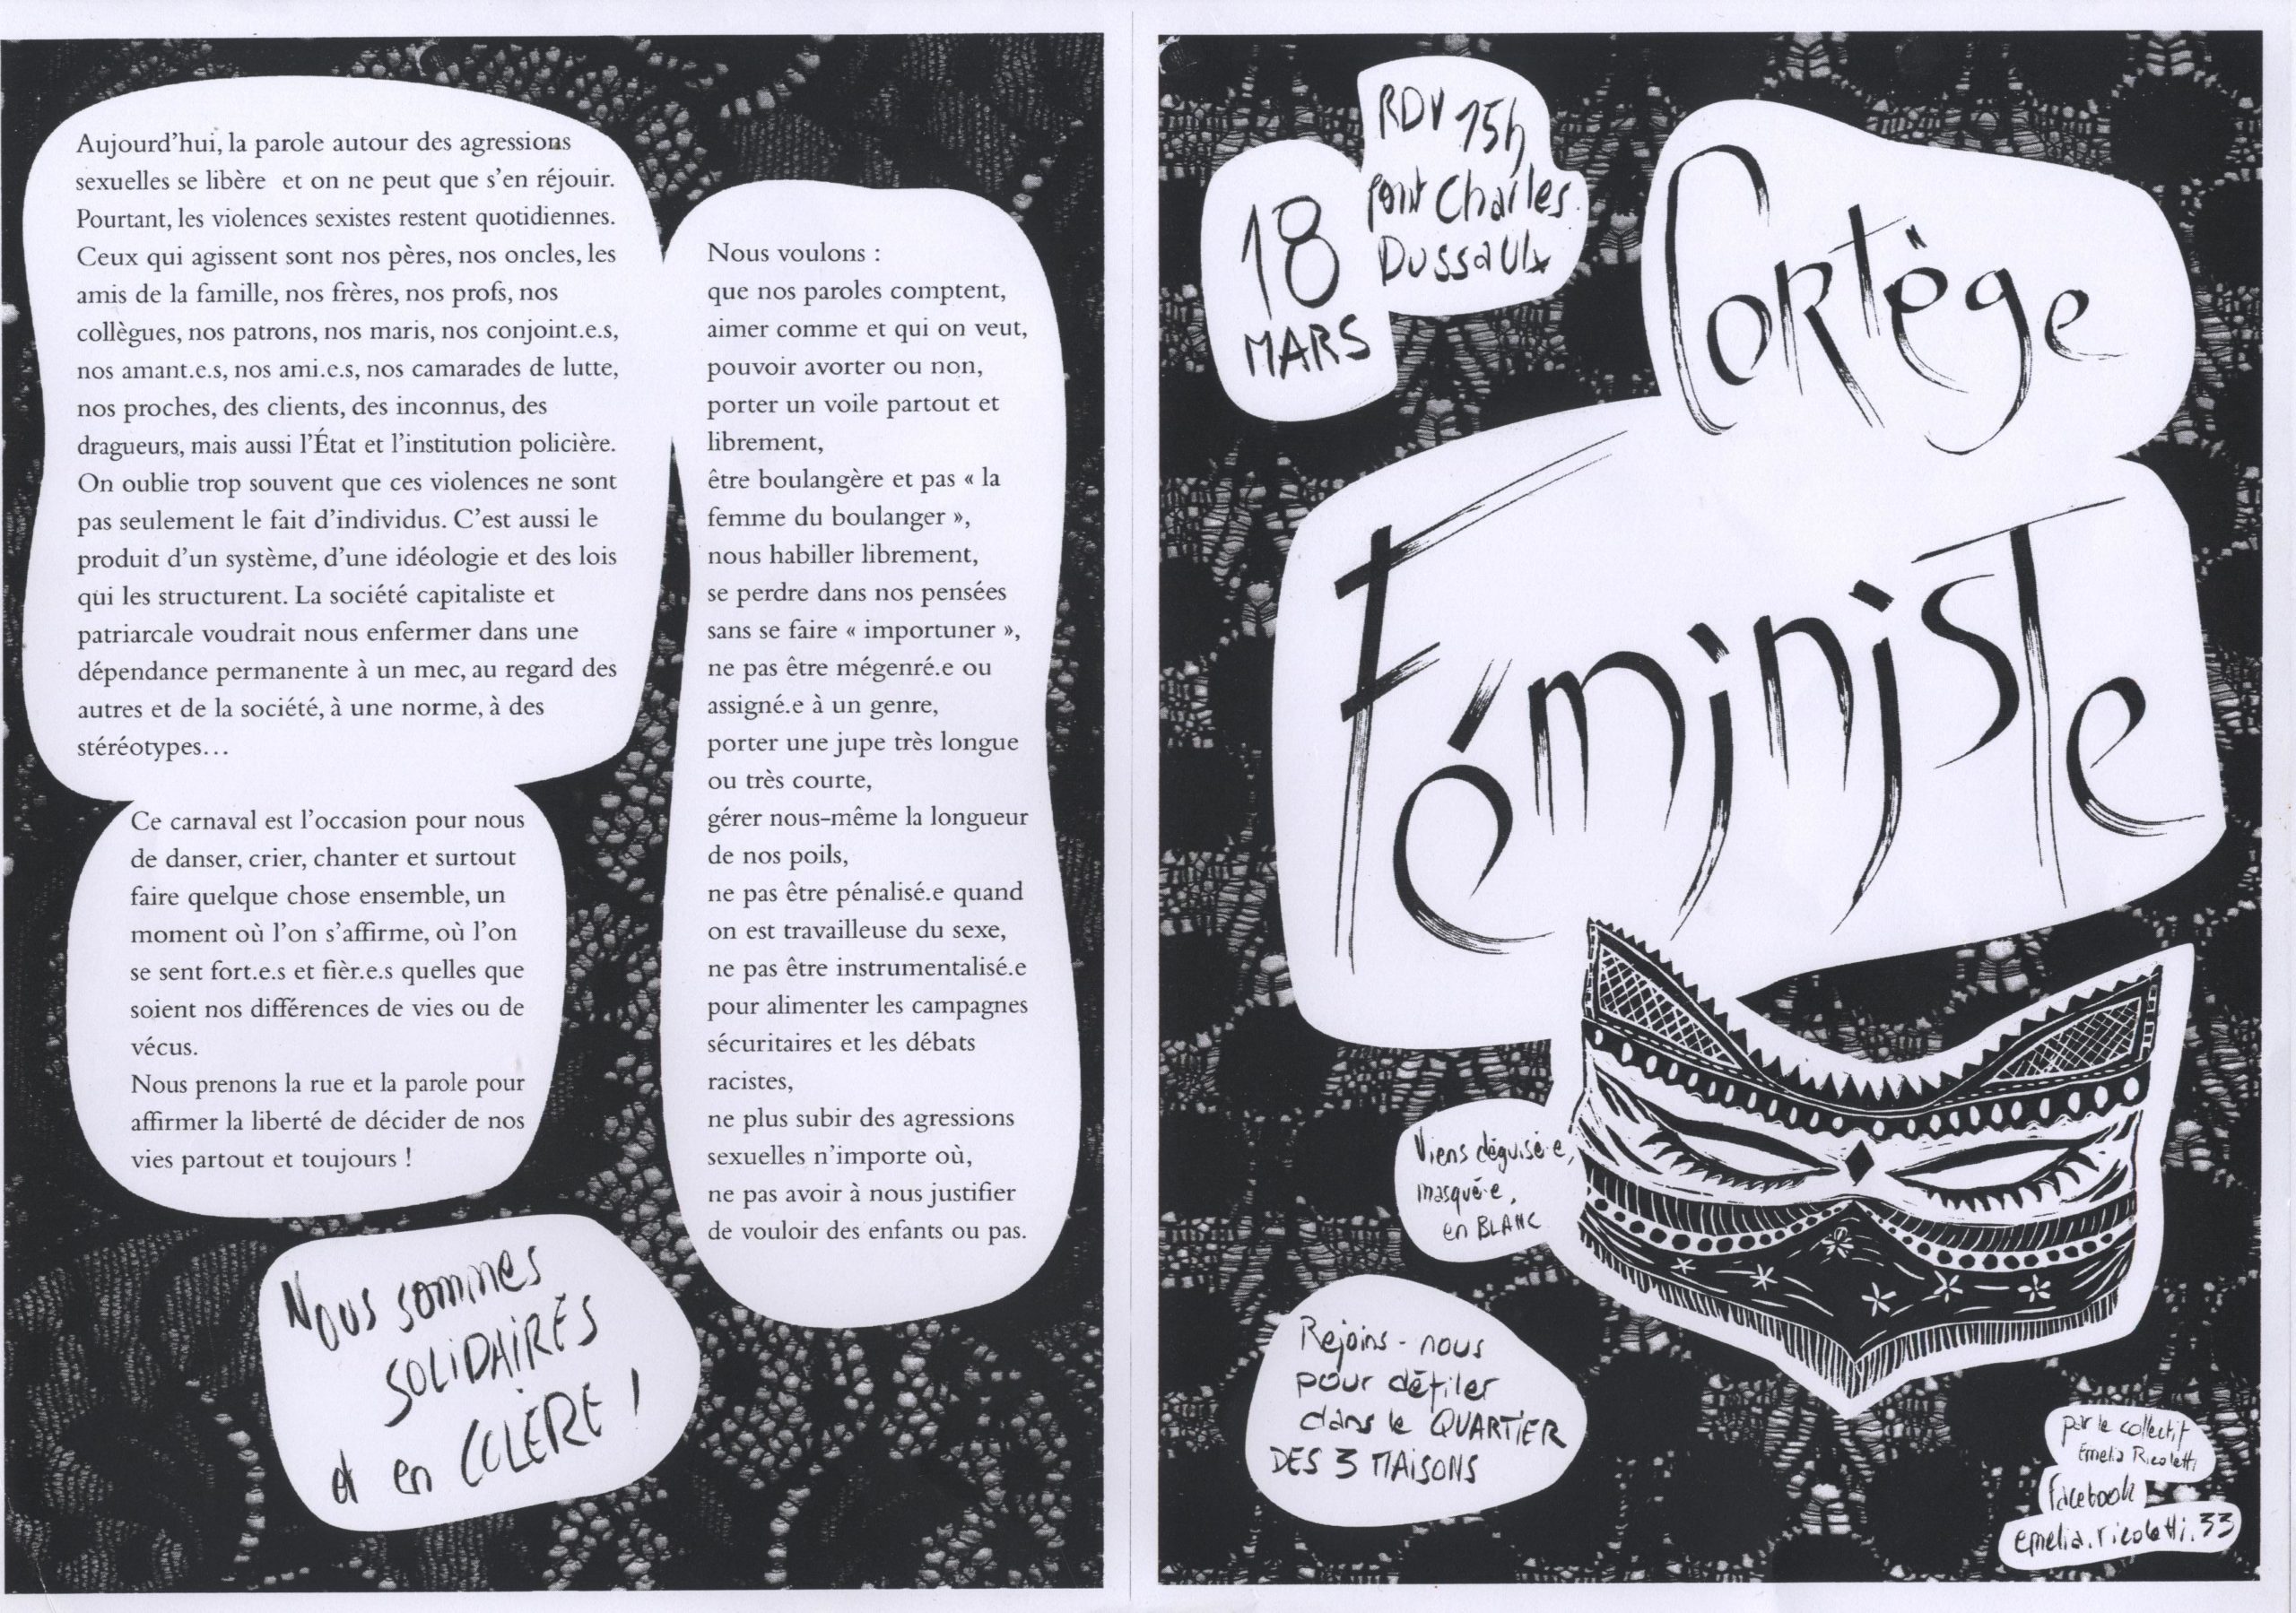 Aujourd'hui, la parole autour des agressions
sexuelles se libère et on ne peut que s'en réjouir.
Pourtant, les violences sexistes restent quotidiennes.
Ceux qui agissent sont nos pères, nos oncles, les
amis de la famille, nos frères, nos profs, nos
collègues, nos patrons, nos maris, nos conjoint.e.s,
nos amant.e.s, nos ami.e.s, nos camarades de lutte,
nos proches, des clients, des inconnus, des
dragueurs, mais aussi l'État et l'institution policière.
On oublie trop souvent que ces violences ne sont
pas seulement le fait d'individus. C'est aussi le
produit d'un système, d'une idéologie et des lois
qui les structurent. La société capitaliste et
patriarcale voudrait nous enfermer dans une
dépendance permanente à un mec, au regard des
autres et de la société, à une norme, à des
stéréotypes…
Ce carnaval est l'occasion pour nous
de danser, crier, chanter et surtout
faire quelque chose ensemble, un
moment où l'on s'affirme, où l'on
se sent fort.e.s et fièr.e.s quelles que
soient nos différences de vies ou de
vécus.
Nous prenons la rue et la parole pour
affirmer la liberté de décider de nos
vies partout et toujours !
Nous sommes
SOLIDAIRES
et en COLÈRE !
Nous voulons :
que nos paroles comptent,
aimer comme et qui on veut,
pouvoir avorter ou non,
porter un voile partout et
librement,
être boulangère et pas « la
femme du boulanger »,
nous habiller librement,
se perdre dans nos pensées
sans se faire « importuner »,
ne pas être mégenré.e ou
assigné.e à un genre,
porter une jupe très longue
ou très courte,
gérer nous-même la longueur
de nos poils,
ne pas être pénalisé.e quand
on est travailleuse du sexe,
ne pas être instrumentalisé.e
pour alimenter les campagnes
sécuritaires et les débats
racistes,
ne plus subir des agressions
sexuelles n'importe où,
ne pas avoir à nous justifier
de vouloir des enfants ou pas.
18
MARS
RDV 15h
pont Charles
Dussaulx
Cortège
Féministe
Viens déguisé·e,
masqué·e,
en BLANC
Rejoins-nous
pour défiler
dans le QUARTIER
DES 3 MAISONS
par le collectif
Emelia Ricoletti
facebook
emelia.ricoletti.33